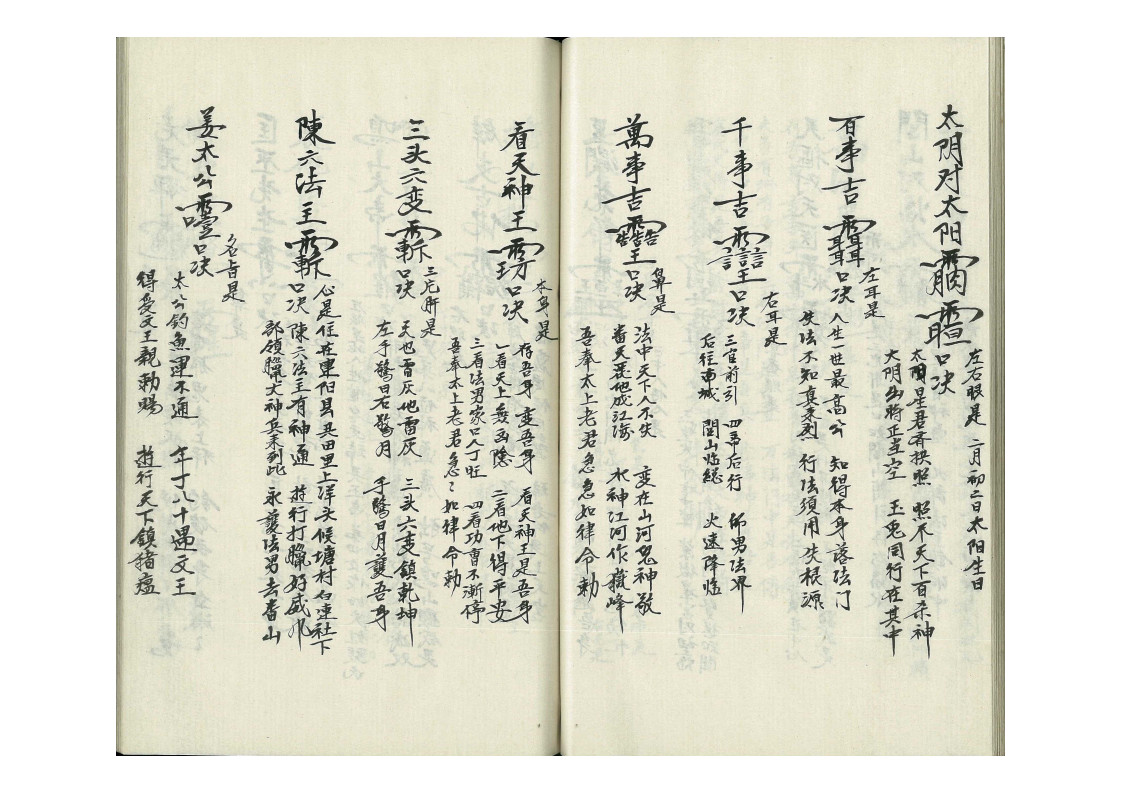 太阴对太阳 口决
左右眼是 二月初二日太阳生日
太阴星君齐拱照 照尽天下百杀神
太阴出将正当空 玉兔同行在其中
百事吉 口决
左耳是
人生一世最高公 知得本身落法门
失法不知真来烈 行法须用失根源
千事吉 口决
右耳是
三官前引 四帝后行 师男法界
后往南城 闾山临总 火速降临
萬事吉 口决
鼻是
法中天下人不失 变在山河鬼神敬
番天 地成江海 水神江河作嶽峰
吾奉太上老君急急如律令勅
看天神王 口决
本身是
存吾身 变吾身 看天神王是吾身
一看天上 二看地下得平安
三看法男家口人丁旺 四看功曹不漸停
吾奉太上老君急〻如律令勅
三头六变 口决
三 肝是
天也雷灰地雷灰 三头六变鎮乾坤
左手驚日右驚月 手驚日月變吾身
陳六法主 口决
心是住在東阳县 田里上洋头候塘村白连社下
陳六法主有神通 遊行打臘好威
部领臘犬神兵来到此 永變法男去 山
姜太公 口决
名旨是
太公钓魚運不通 年丁八十遇文王
得受文王親勅賜 遊行天下鎮猪瘟